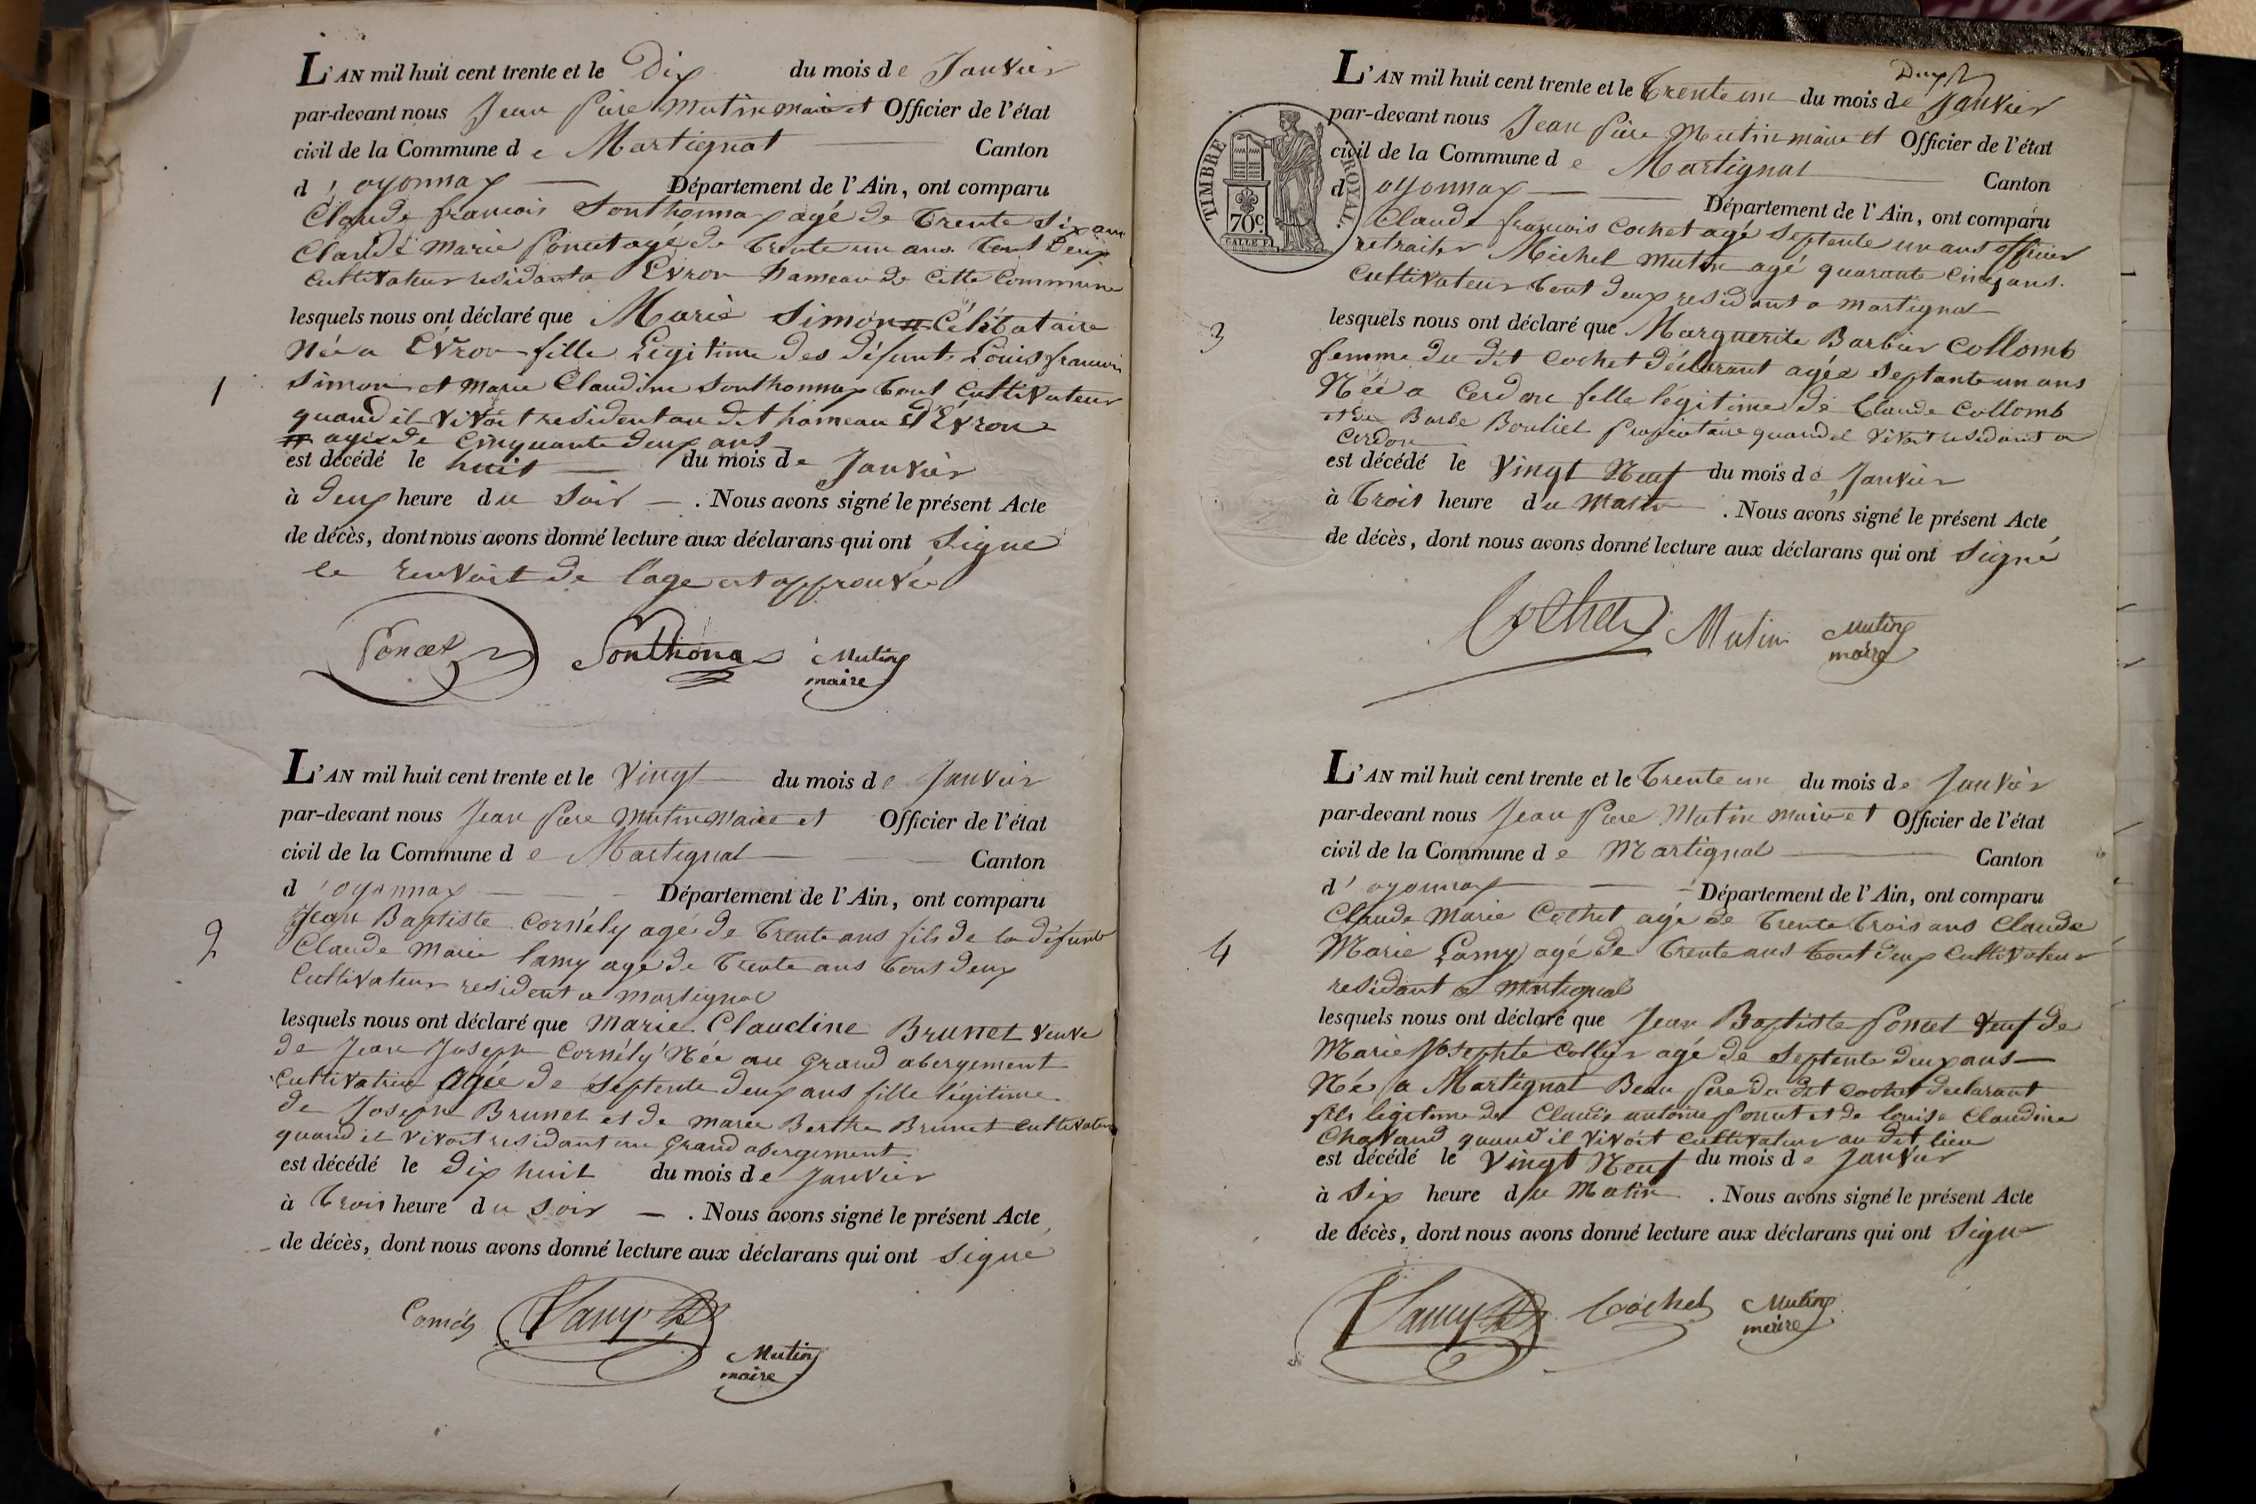 L'AN mil huit cent trente et le Dix du mois de Janvier
par-devant nous Jean Piere Mutin maire et Officier de l'état
civil de la Commune de Martignat Canton
d'oyonnax Département de l'Ain, ont comparu
Claude francois Sonthonnax agé de Trente Six ans
Claude Marie Poncet agé de Trente un ans Tout Deux
Cultivateur residant a Evron hameau de Cette Commune
lesquels nous ont déclaré que Marie Simon Célibataire
Née a Evron fille Légitime des défunts Louis francois
1
Simon et Marie Claudine Sonthonnax Tout Cultivateur
quand il vivoit resident au dit hameau d'Evron
agée de Cinquante deux ans
est décédé le huit du mois de Janvier
à deux heure du Soir . Nous avons signé le présent Acte
de décès, dont nous avons donné lecture aux déclarans qui ont Signé
le renvoit de l'age est approuvée
Poncet Sonthonax Mutin
maire
L'AN mil huit cent trente et le Vingt du mois de Janvier
par-devant nous Jean Piere Mutin Maire et Officier de l'état
civil de la Commune de Martignat Canton
d'oyonnax Département de l'Ain, ont comparu
Jean Baptiste Cornély agé de Trente ans fils de la défunte
2
Claude Marie Lamy agé de Trente ans Tout deux
Cultivateur resident a Martignat
lesquels nous ont déclaré que Marie Claudine Brunet veuve
de Jean Joseph Cornély Née au Grand abergement
Cultivatrice Agée de Septente deux ans fille légitime
de Joseph Brunet et de Marie Berthe Brunet Cultivateur
quand il vivoit residant au Grand abergement
est décédé le dix huit du mois de Janvier
à Trois heure du Soir . Nous avons signé le présent Acte
de décès, dont nous avons donné lecture aux déclarans qui ont Signé
Lamy
Mutin
maire
Deux
L'AN mil huit cent trente et le Trente un du mois de Janvier
par-devant nous Jean Piere Mutin maire et Officier de l'état
civil de la Commune de Martignat Canton
d'oyonnax Département de l'Ain, ont comparu
TIMBRE ROYAL
70c.
Claude francois Cochet agé Septente un ans officier
retraiter Michel Mutin agé quarante Cinq ans
Cultivateur Tout deux residant a Martignat
3
lesquels nous ont déclaré que Marguerite Barbier Collomb
femme du dit Cochet déclarant agée Septante un ans
Née a Cerdon fille légitime de Claude Collomb
et de Barbe Bouliet Propriétaire quand il vivoit residant a
Cerdon
est décédé le Vingt Neuf du mois de Janvier
à Trois heure du Matin . Nous avons signé le présent Acte
de décès, dont nous avons donné lecture aux déclarans qui ont Signé
Cochet Mutin Mutin
maire
L'AN mil huit cent trente et le Trente un du mois de Janvier
par-devant nous Jean Piere Mutin maire et Officier de l'état
civil de la Commune de Martignat Canton
d'oyonnax Département de l'Ain, ont comparu
Claude Marie Cochet agé de Trente Trois ans Claude
4
Marie Lamy agé de Trente ans Tout deux Cultivateur
residant a Martignat
lesquels nous ont déclaré que Jean Baptiste Poncet Veuf de
Marie Josephte Collet agé de Septente deux ans
Née a Martignat Beau Pere du dit Cochet declarant
fils légitime de Claude antoine Poncet et de Louise Claudine
Chavand quand il vivoit Cultivateur au dit lieu
est décédé le Vingt Neuf du mois de Janvier
à Six heure du Matin . Nous avons signé le présent Acte
de décès, dont nous avons donné lecture aux déclarans qui ont Signé
Lamy Cochet Mutin
maire